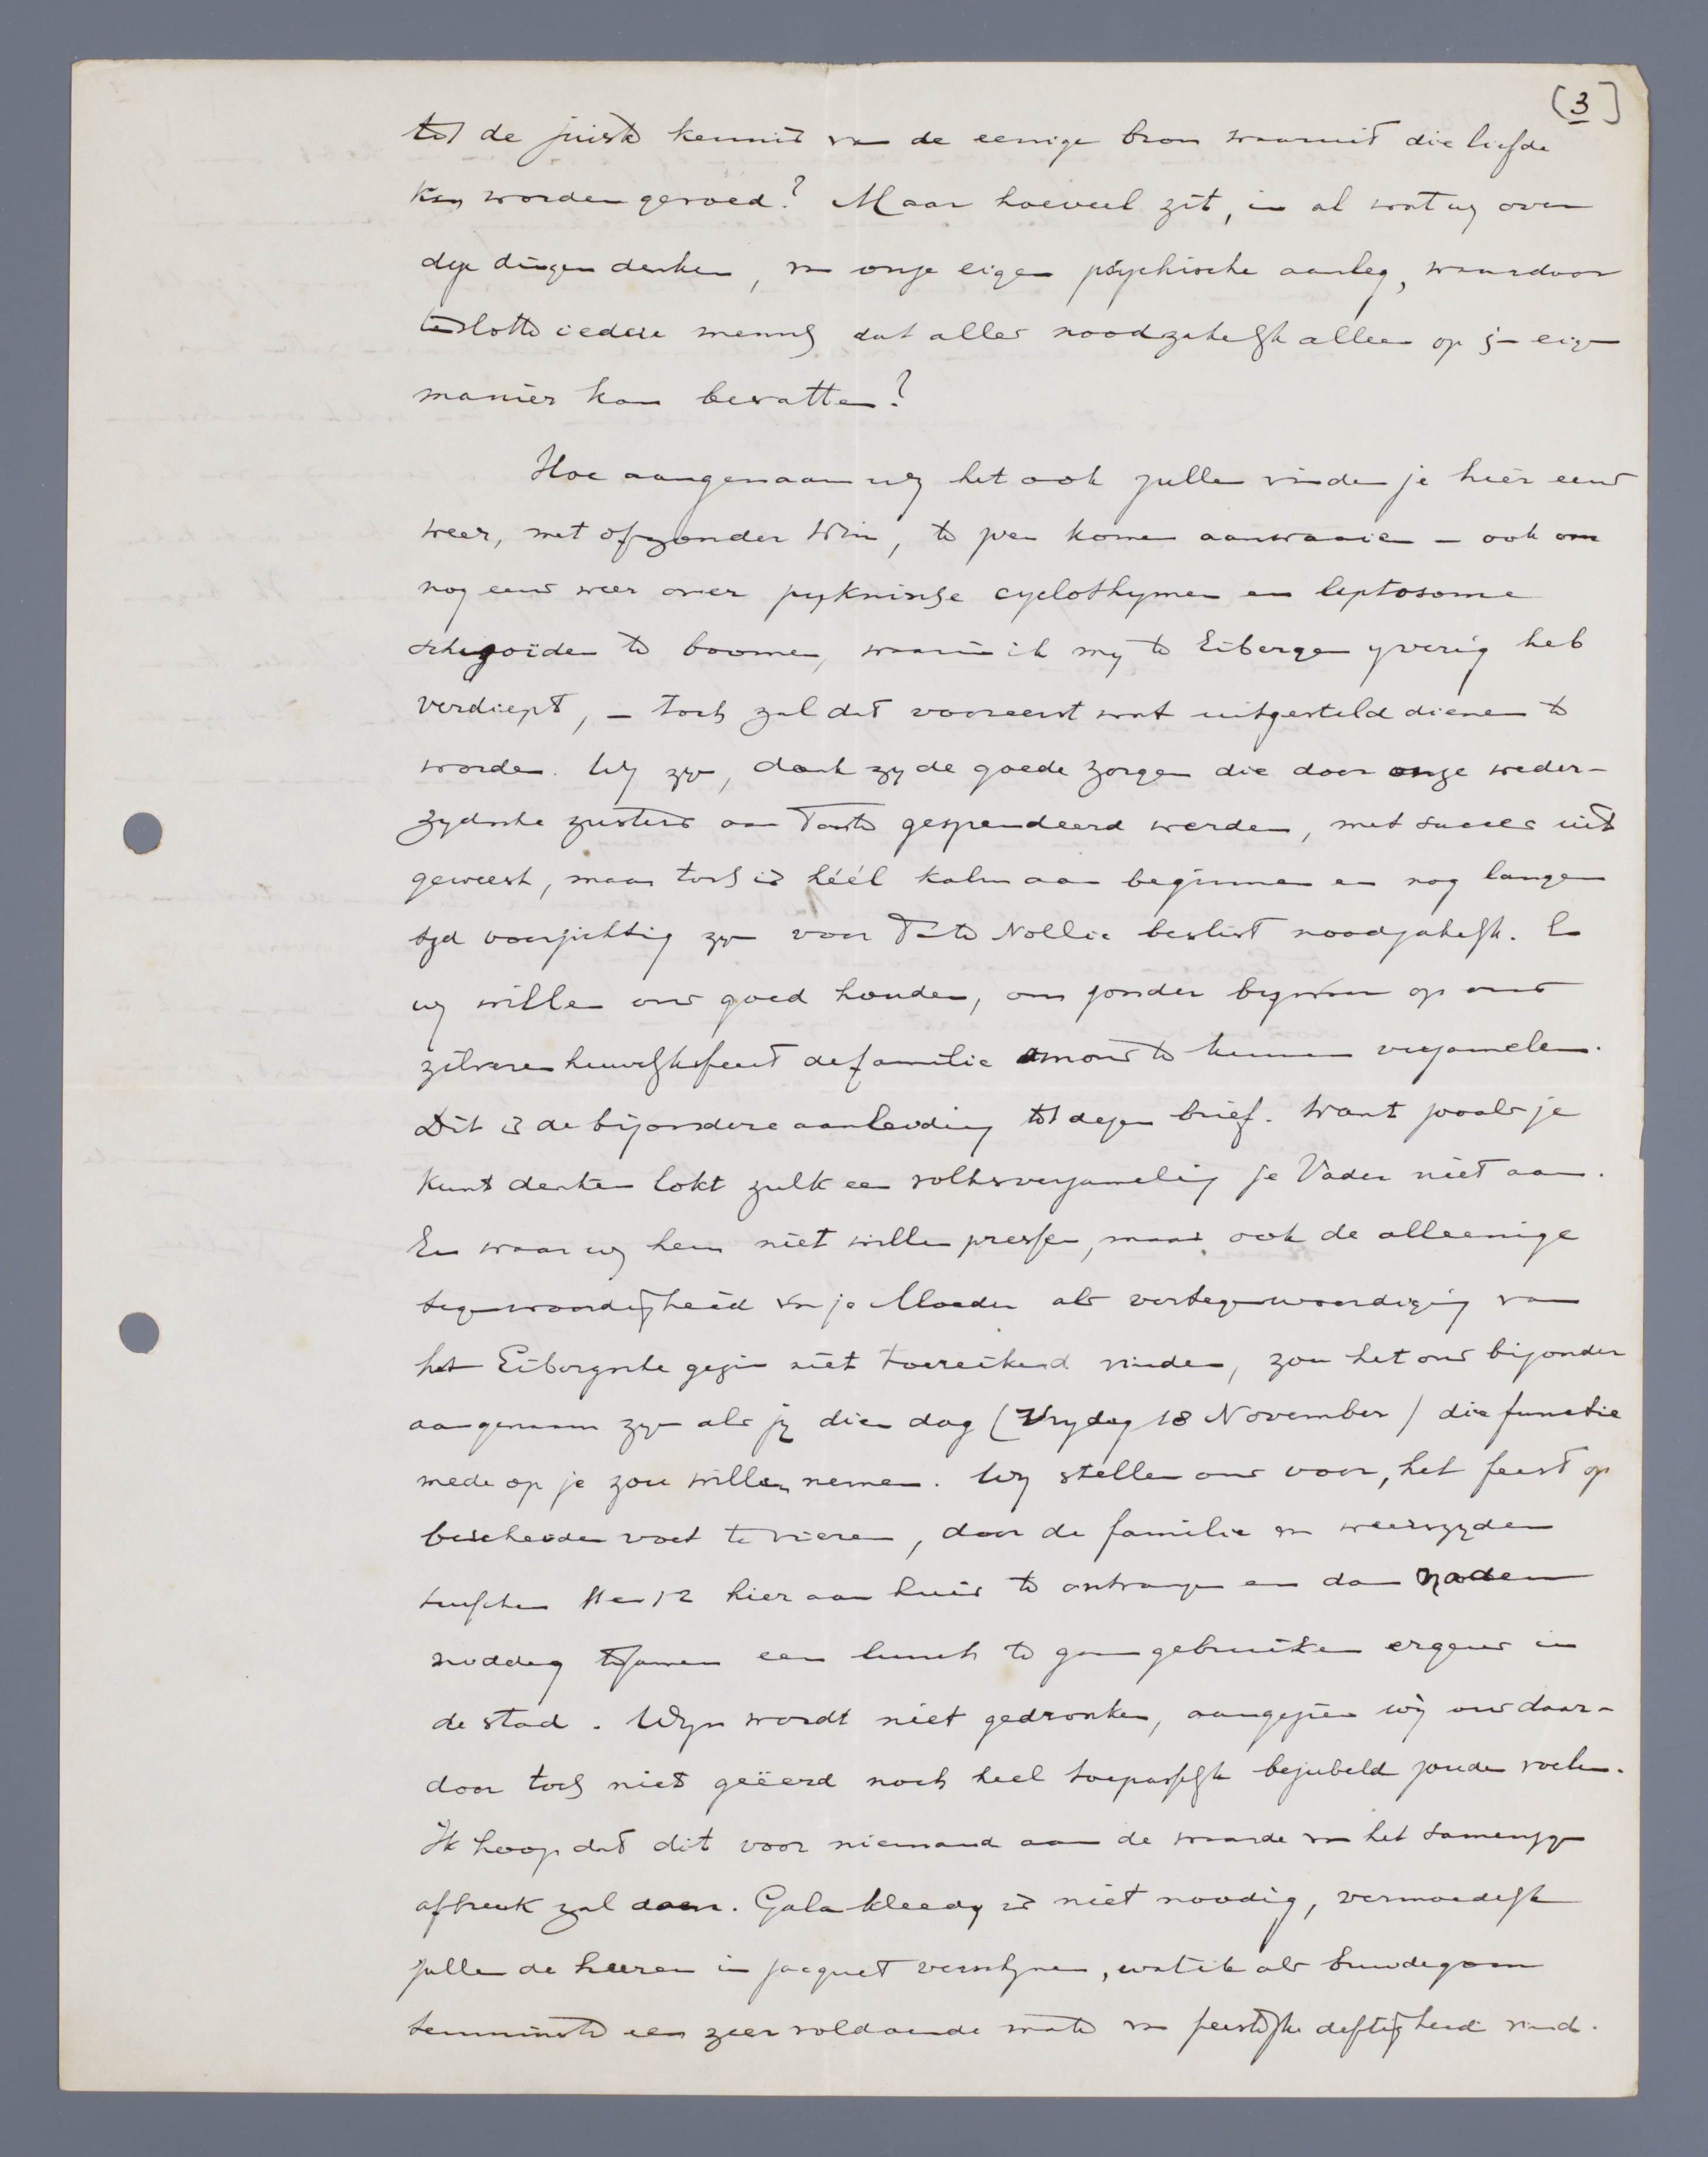 [3]
tot de juiste kennis van de eenige bron waaruit die liefde
kan worden gevoed? Maar hoeveel zit, in al wat wij over
deze dingen denken, van onze eigen psychische aanleg, waardoor
tenslotte iedere mensch dat alles noodzakelijk alleen op zijn eigen
manier kan bevatten?
Hoe aangenaam wij het ook zullen vinden je hier eens
weer, met of zonder Wim, te zien komen aanwaaien – ook om
nog eens weer over pyknische cyclothymen en leptosome
schizoïden te boomen, waarin ik mij te Eibergen ijverig heb
verdiept, – toch zal dat vooreerst wat uitgesteld dienen te
worden. Wij zijn, dank zij de goede zorgen die door onze weder-
zijdsche zusters aan Tante gespendeerd werden, met succes uit
geweest, maar toch is héél kalm aan beginnen en nog langen
tijd voorzichtig zijn voor Tante Nollie beslist noodzakelijk. En
wij willen ons goed houden, om zonder bezwaar op ons
zilveren huwelijksfeest de familie om ons te kunnen verzamelen.
Dit is de bijzondere aanleiding tot dezen brief. Want zooals je
kunt denken lokt zulk een volksverzameling je Vader niet aan.
En waar wij hem niet willen pressen, maar ook de alleenige
tegenwoordigheid van je Moeder als vertegenwoordiging van
het Eibergsche gezin niet toereikend vinden, zou het ons bijzonder
aangenaam zijn als jij dien dag (Vrijdag 18 November) die functie
mede op je zou willen nemen. Wij stellen ons voor, het feest op
bescheiden voet te vieren, door de familie van weerszijden
tusschen 11 en 12 hier aan huis te ontvangen en dan
middag tezamen een lunch te gaan gebruiken ergens in
de stad. Wijn wordt niet gedronken, aangezien wij ons daar-
door toch niet geëerd noch heel toepasselijk bejubeld zouden voelen.
Ik hoop dat dit voor niemand aan de waarde van het samenzijn
afbreuk zal doen. Gala kleedij is niet noodig, vermoedelijk
zullen de heeren in jacquet verschijnen, wat ik als bruidegom
tenminste een zeer voldoende mate van feestelijke deftigheid vind.